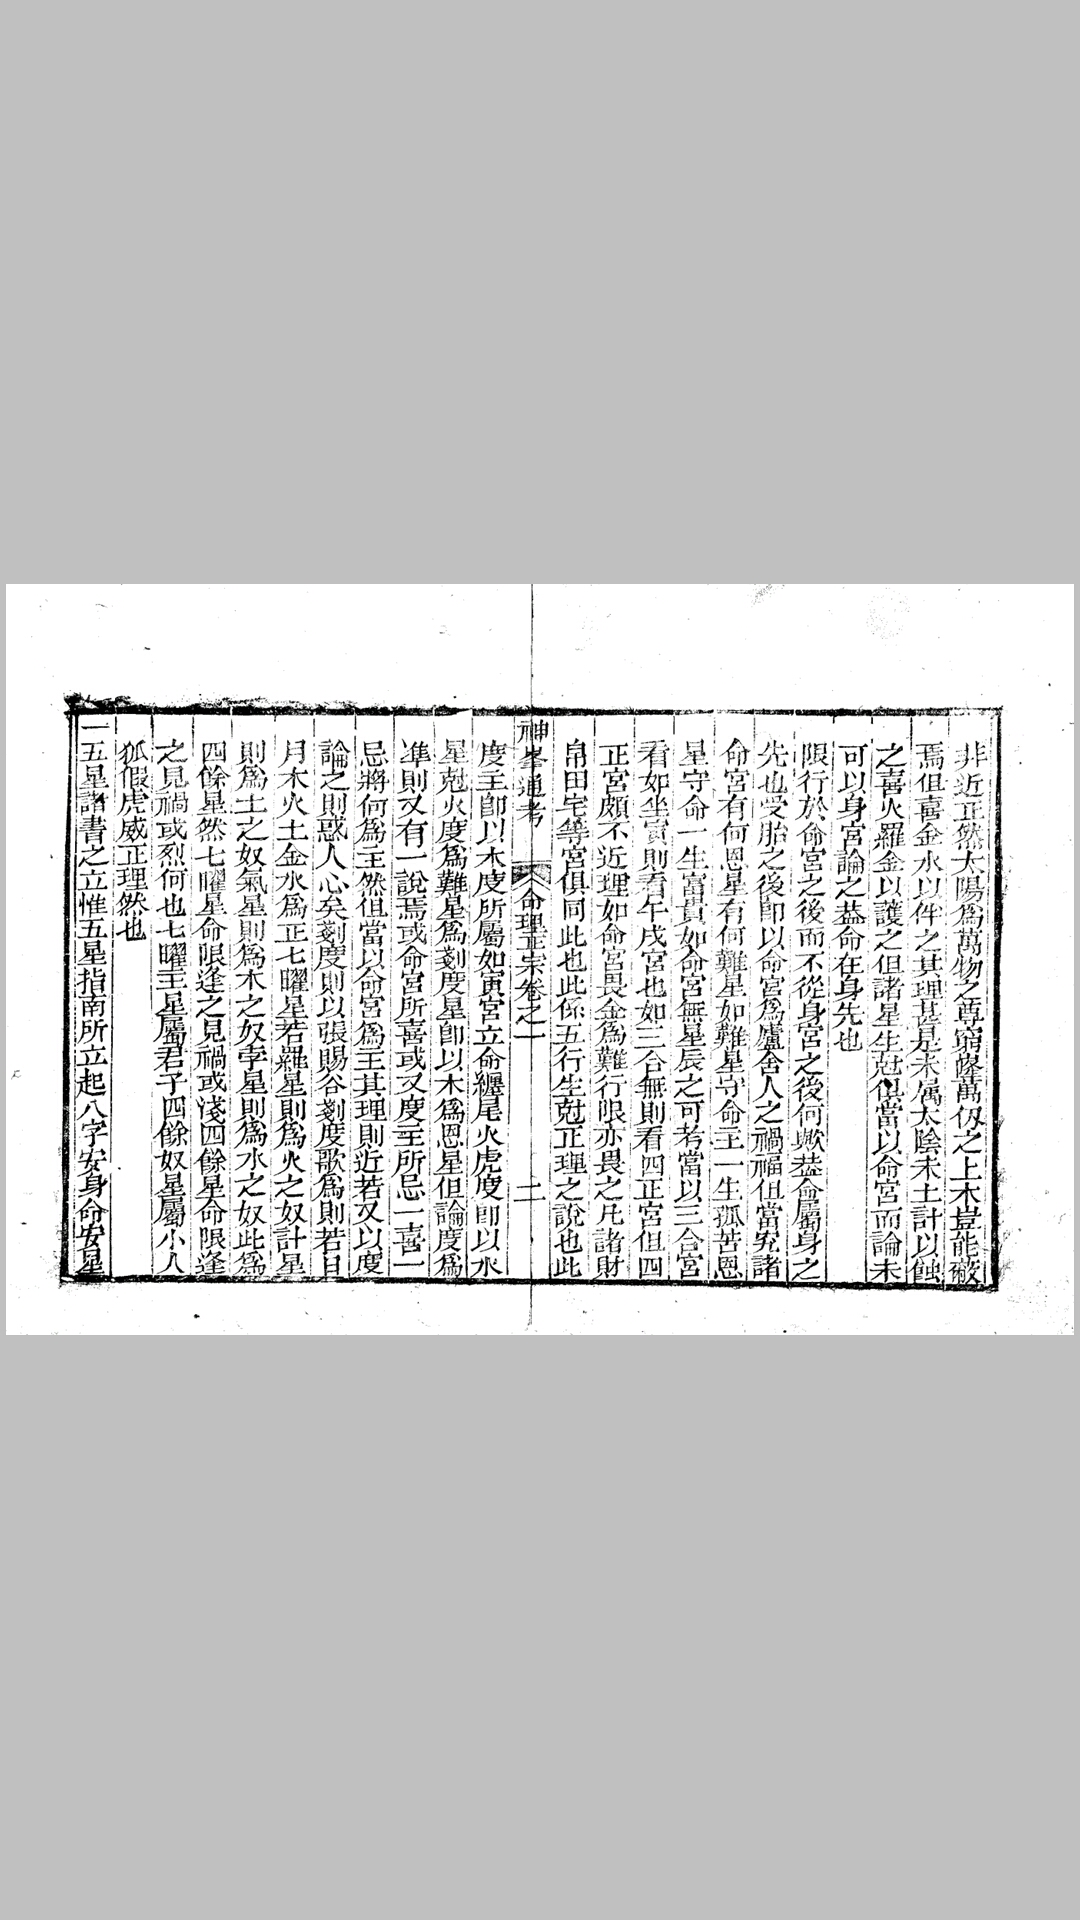 非近正然太陽為萬物之尊窮窿萬仭之上木豈能蔽
焉但喜金水以伴之其理甚是未屬太陰未土計以蝕
之喜火羅金以護之但諸星生尅俱當以命宮而論未
可以身宮論之葢命在身先也
限行於命宮之後而不從身宮之後何歟葢命屬身之
先也受胎之後即以命宮為廬舍人之禍福但當究諸
命宮有何恩星有何難星如難星守命主一生孤苦恩
星守命一生富貴如命宮無星辰之可考當以三合宮
看如坐寅則看午戌宮也如三合無則看四正宮但四
正宮頗不近理如命宮畏金為難行限亦畏之凡諸財
帛田宅等宮俱同此也此係五行生尅正理之說也此
神峯通考 命理正宗卷之一 二
度主卽以木度所屬如寅宮立命纏尾火虎度卽以水
星尅火度為難星為剗度星卽以木為恩星但論度為
準則又有一說焉或命宮所喜或又度主所忌一喜一
忌將何為主然但當以命宮為主其理則近若又以度
論之則惑人心矣剗度則以張賜谷剗度歌為則若日
月木火土金水為正七曜星若羅星則為火之奴計星
則為土之奴氣星則為木之奴孛星則為水之奴此為
四餘星然七曜星命限逢之見禍或淺四餘星命限逢
之見禍或烈何也七曜主星屬君子四餘奴星屬小人
狐假虎威正理然也
一五星諸書之立惟五星指南所立起八字安身命安星